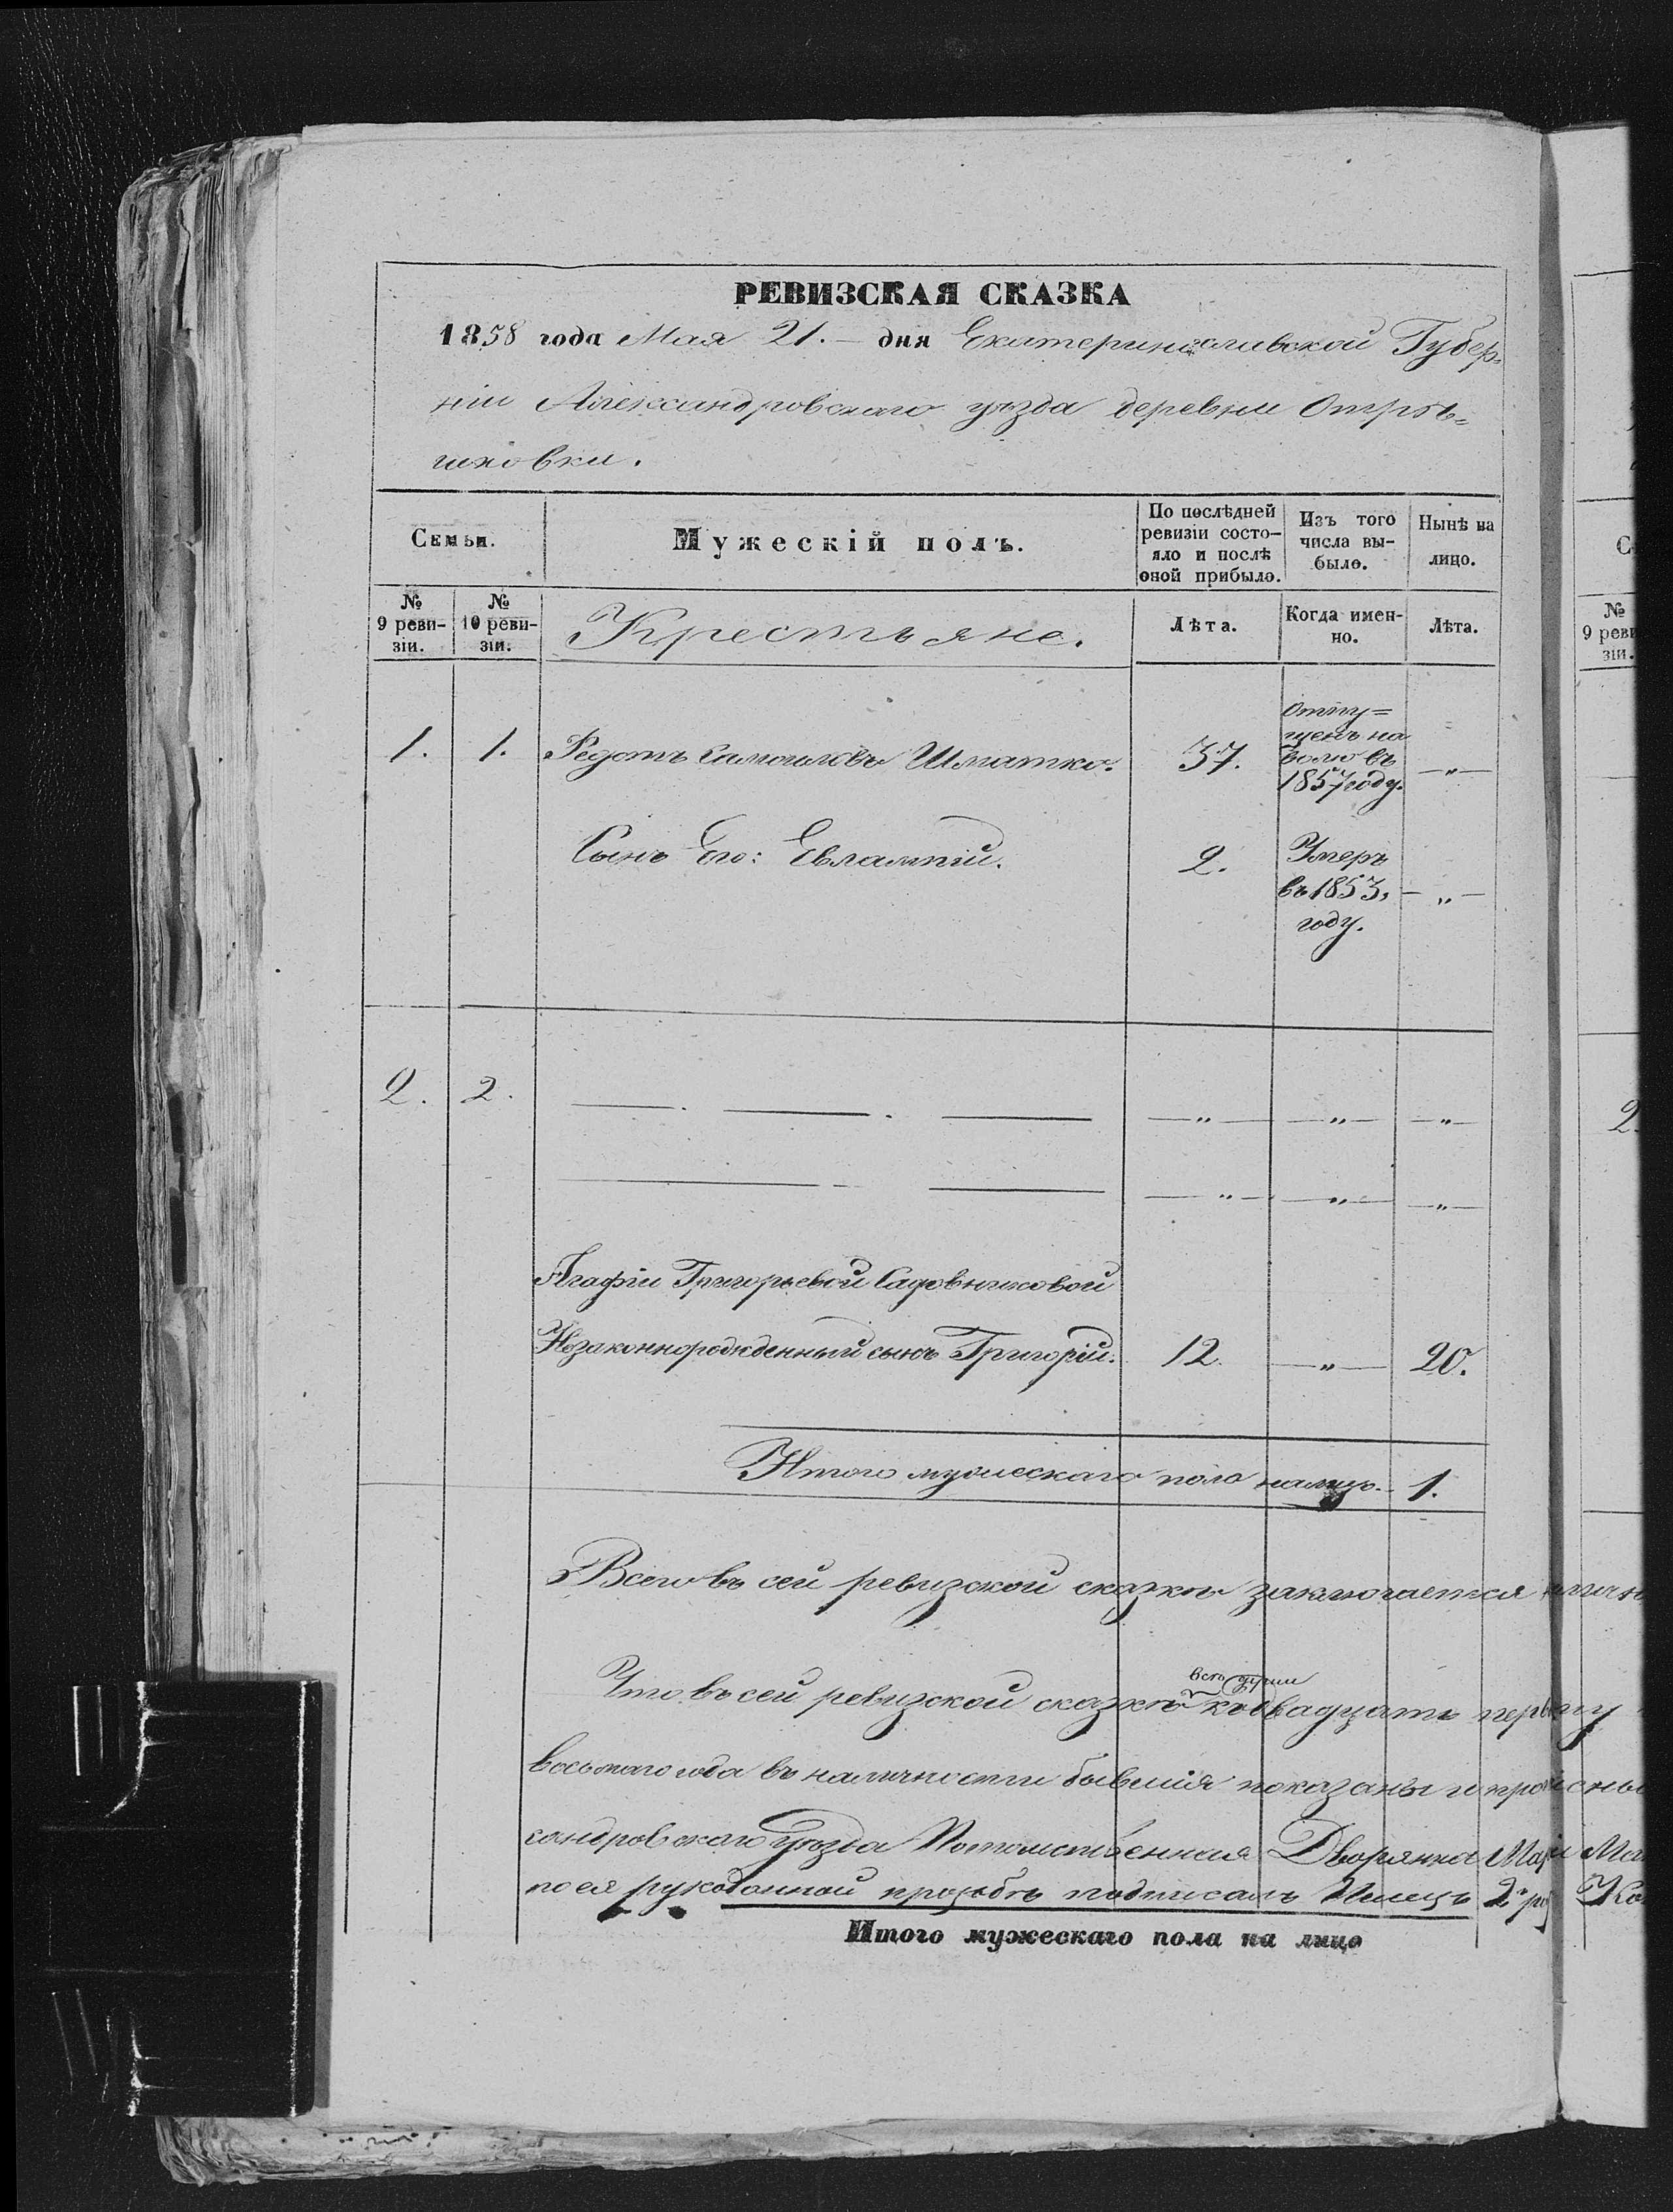 РЕВИЗСКАЯ СКАЗКА
1858 года Мая 21.- дня Екатеринославской Губер=
ніи Александровскаго уѣзда деревни Отрѣ=
шковки.
Семьи.
Мужескій полъ.
По послѣдней ревизіи состо-
яло и послѣ оной прибыло.
Изъ того числа вы-
было.
Нынѣ на лицо.
№ 9 реви-
зіи.
№ 10 реви-
зіи.
Крестьяне.
Лѣта.
Когда имен-
но.
Лѣта.
1. 1. Федотъ Самойловъ Шматко. 37. Отпу=
щенъ на
волю въ
1857 году. —„—
Сынъ Его: Евлампій. 2. Умеръ
въ 1853,
году. —„—
2. 2. —. —. — —„— —„— —„—
— - — —„— —„— —„—
Агафіи Григорьевой Садовниковой
Незаконнорожденный сынъ Григорій. 12. —„— 20.
Итого мужескаго пола налицо. 1.
Всего въ сей ревизской сказкѣ заключается
всѣ души
Что въ сей ревизской сказкѣ кодвадцать первму
восьмаго года въ наличности бывшія показаны и
сандровскаго Уѣзда Потомственная Дворянка
по ея рукоданной прозьбѣ подписалъ
Итого мужескаго пола на лицо
С
№
9 реви
зіи.
2.